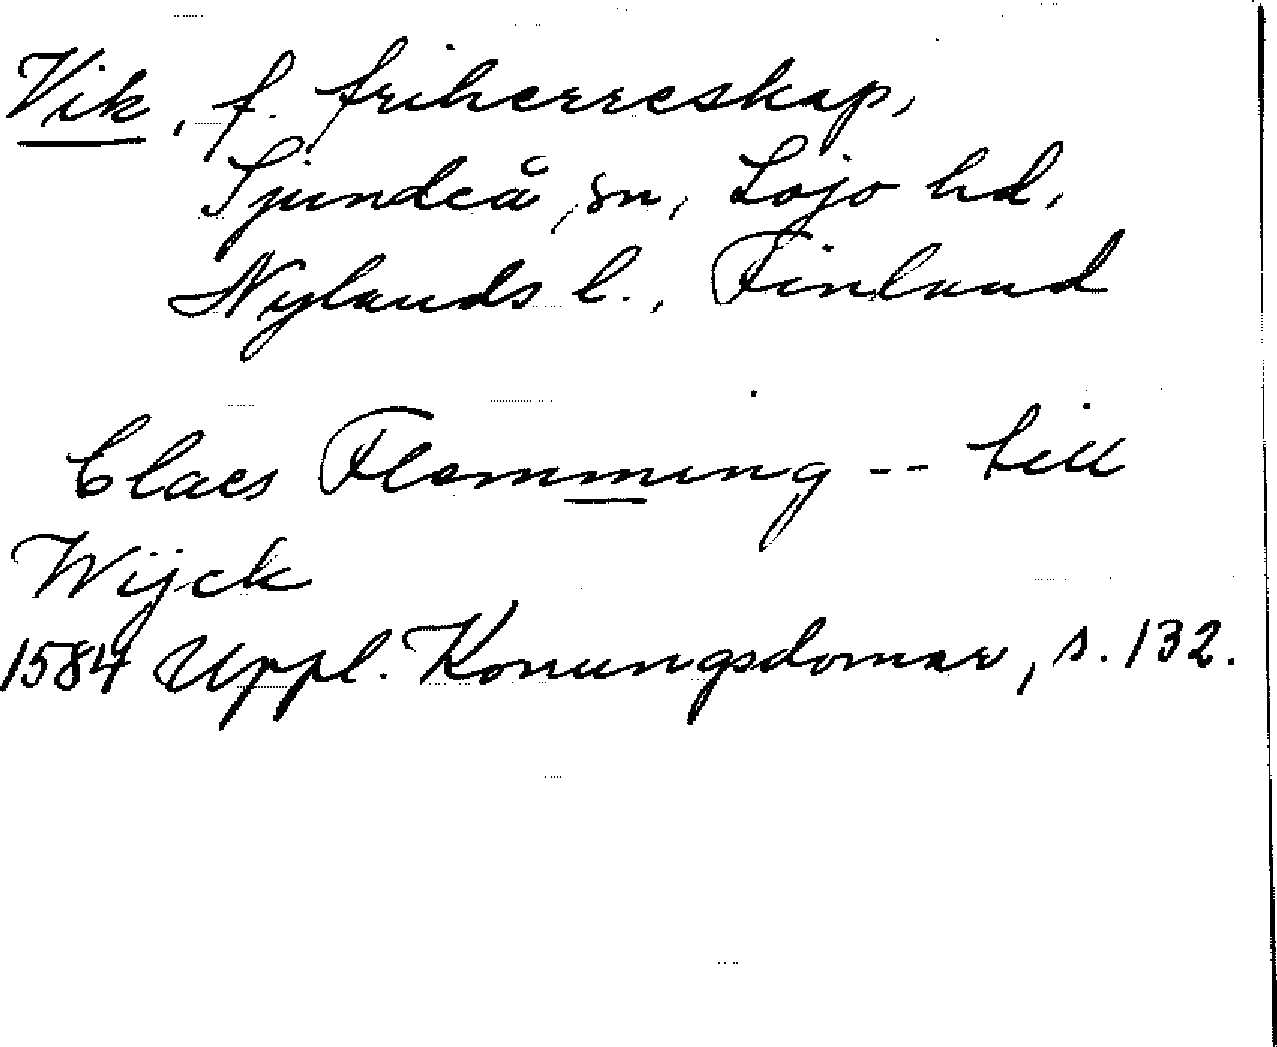 Vik, f. friherreskap,
Sjundeå sn, Lojo hd,
Nylands l., Finland
Claes Flemming -- till
Wijck
1584 Uppl. Konungsdomar, s. 132.